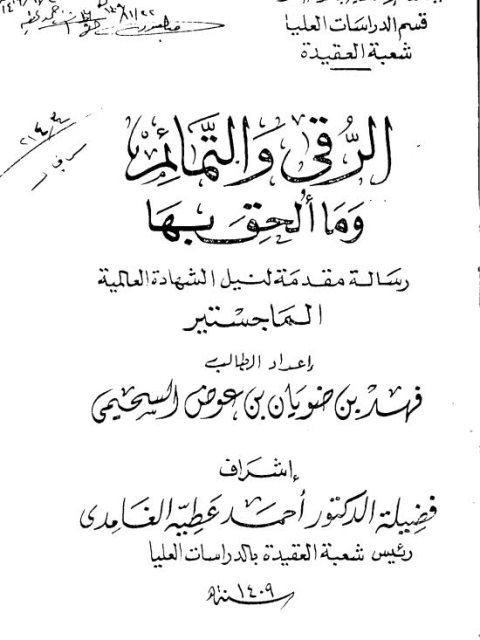 قسم الدراسات العليا
شعبة العقيدة
الرُّقى وَالتَّمائِم
وَمَا أُلحِقَ بِهَا
رسَالة مقدمَة لنيل الشهادة العالمية
المَاجستير
إعداد الطالب
فهد بن ضويان بن عوض السحيمي
إشراف
فضيلة الدكتور أحمد عطيه الغامدي
رئيس شعبة العقيدة بالدراسات العليا
سنة ١٤٠٩هـ